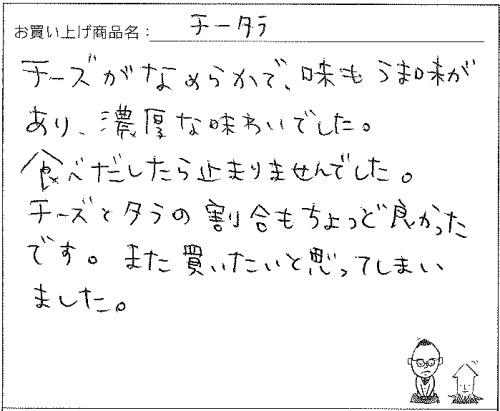 お買い上げ商品名: チータラ
チーズがなめらかで、味もうま味が
あり、濃厚な味わいでした。
食べだしたら止まりませんでした。
チーズとタラの割合もちょっど良かった
です。また買いたいと思ってしまい
ました。